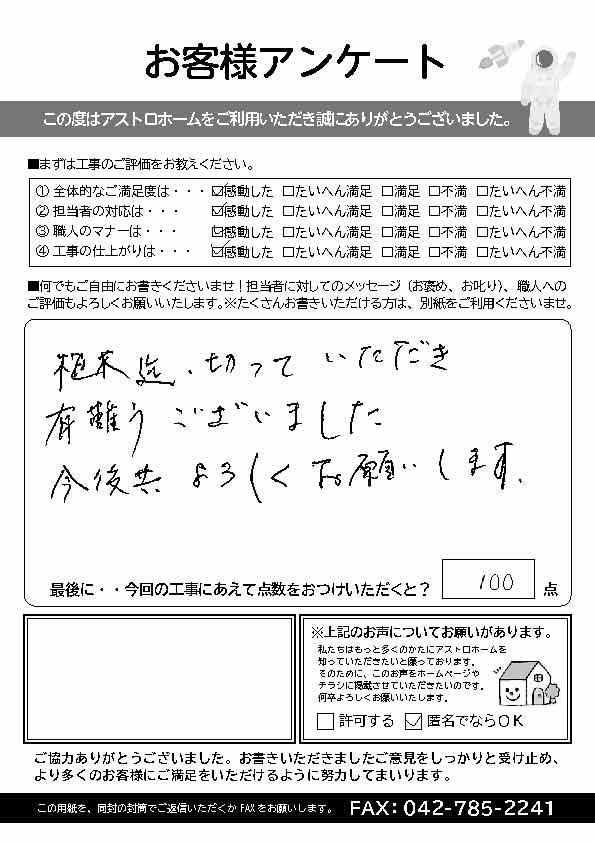 お客様アンケート
この度はアストロホームをご利用いただき誠にありがとうございました。
■まずは工事のご評価をお教えください。
① 全体的なご満足度は・・・☑感動した □たいへん満足 □満足 □不満 □たいへん不満
② 担当者の対応は・・・ ☑感動した □たいへん満足 □満足 □不満 □たいへん不満
③ 職人のマナーは・・・ ☑感動した □たいへん満足 □満足 □不満 □たいへん不満
④ 工事の仕上がりは・・・ ☑感動した □たいへん満足 □満足 □不満 □たいへん不満
■何でもご自由にお書きくださいませ！担当者に対してのメッセージ（お褒め、お叱り）、職人への
ご評価もよろしくお願いいたします。※たくさんお書きいただける方は、別紙をご利用くださいませ。
植木迄、切って いただき
有難う ございました
今後共 よろしく お願いします。
最後に・・今回の工事にあえて点数をおつけいただくと？ 100 点
※上記のお声についてお願いがあります。
私たちはもっと多くのかたにアストロホームを
知っていただきたいと願っております。
そのために、このお声をホームページや
チラシに掲載させていただきたいのです。
何卒よろしくお願いいたします。
□ 許可する ☑ 匿名でならＯＫ
ご協力ありがとうございました。お書きいただきましたご意見をしっかりと受け止め、
より多くのお客様にご満足をいただけるように努力してまいります。
この用紙を、同封の封筒でご返信いただくか FAX をお願いします。 FAX: 042-785-2241